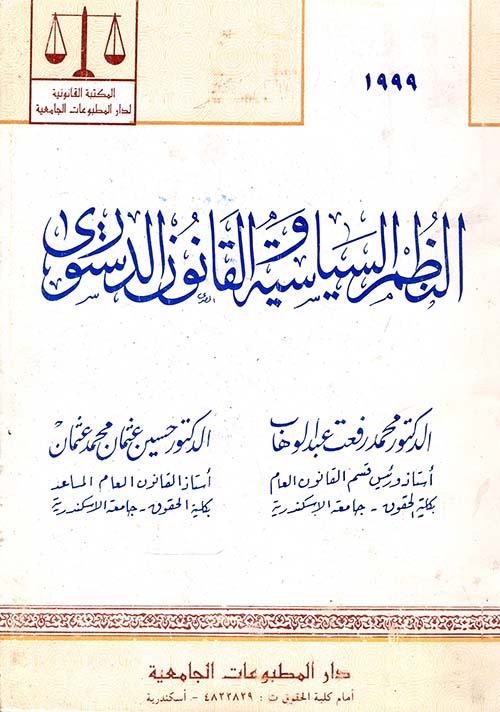 المكتبة القانونية
لدار المطبوعات الجامعية
١٩٩٩
النظم السياسية والقانون الدستوري
الدكتور محمد رفعت عبد الوهاب
أستاذ ورئيس قسم القانون العام
بكلية الحقوق - جامعة الإسكندرية
الدكتور حسين عثمان محمد عثمان
أستاذ القانون العام المساعد
بكلية الحقوق - جامعة الاسكندرية
دار المطبوعات الجامعية
أمام كلية الحقوق ت : ٤٨٢٣٨٢٩ - أسكندرية